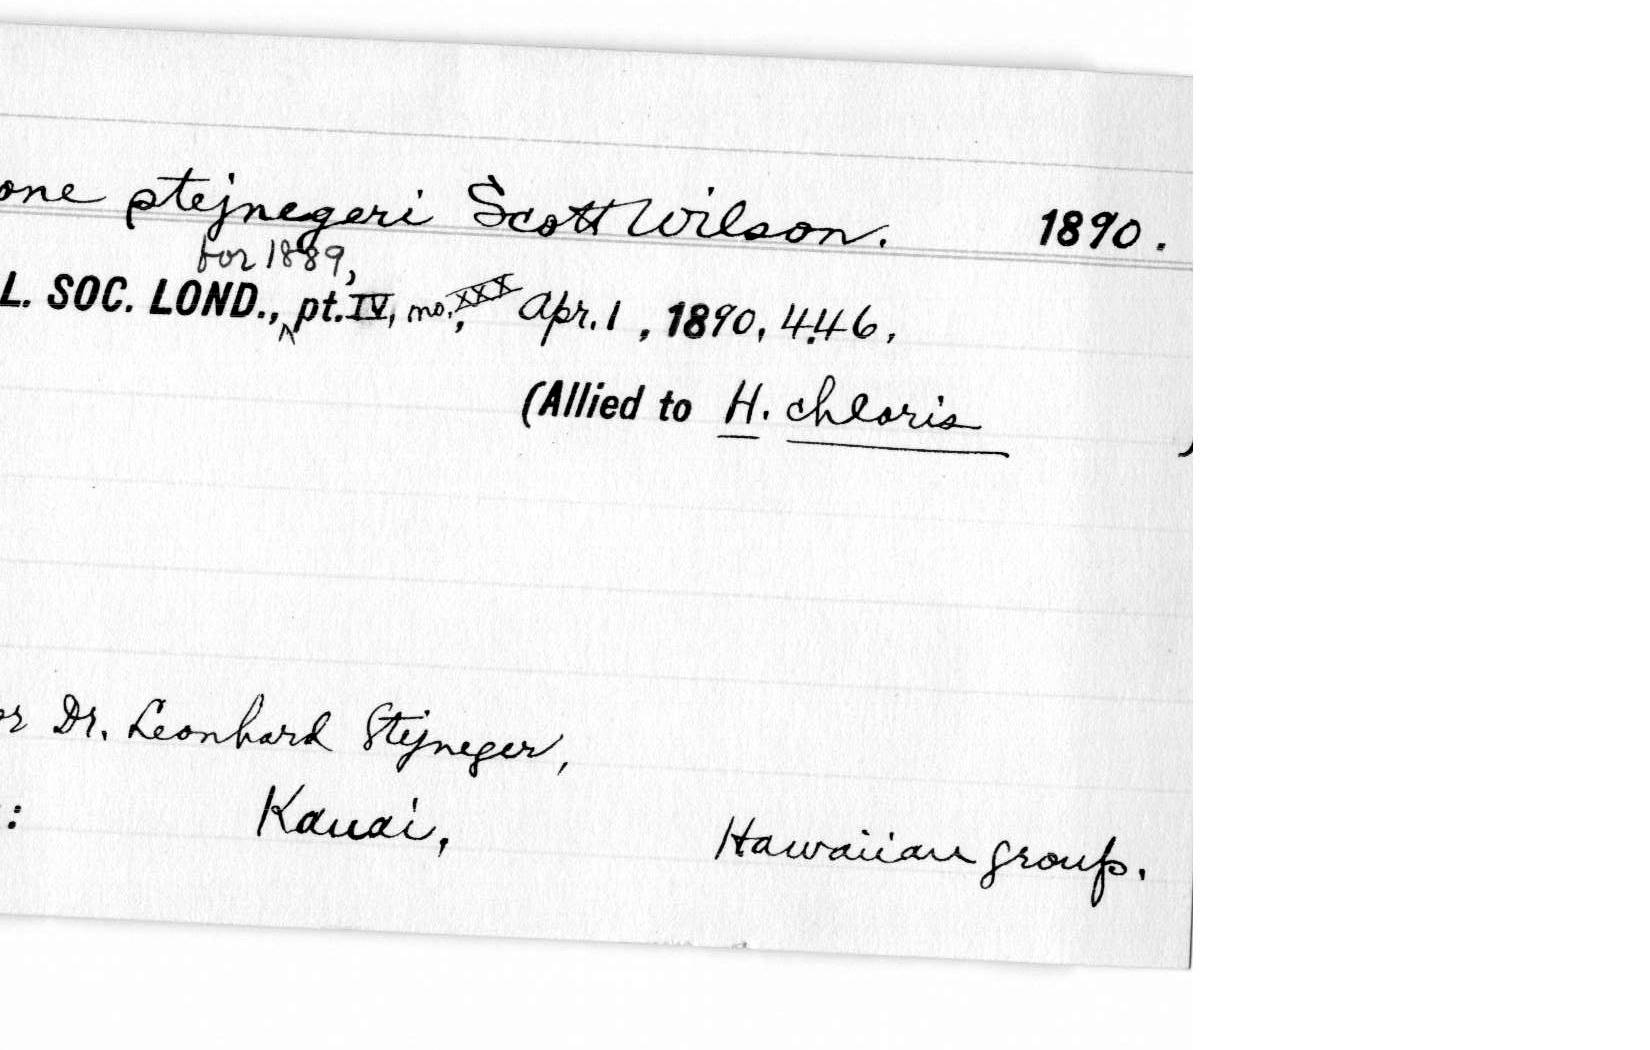 one stejnegeri Scott Wilson. 1890.
for 1889,
L. SOC. LOND., ^ pt. IV, no. XXX, Apr. 1, 1890, 446,
(Allied to H. chloris )
or Dr. Leonhard Stejneger,
: Kauai, Hawaiian group.